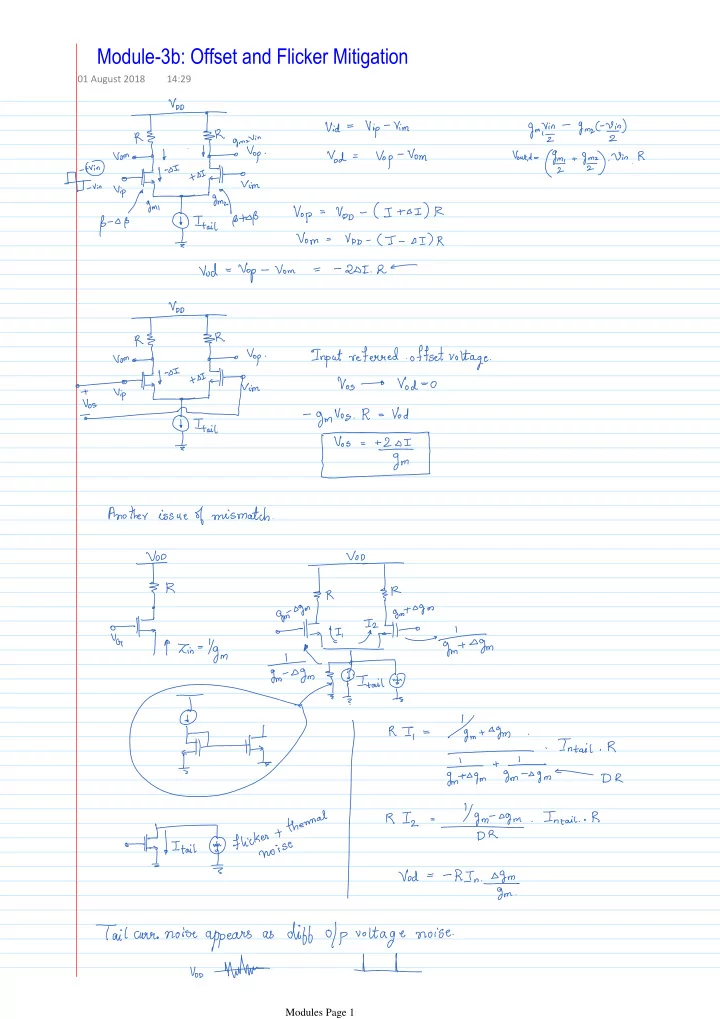 Module-3b: Offset and Flicker Mitigation
01 August 2018 14:29
V_DD
R R
g_m2 Vin
Vom Vop
-ΔI +ΔI
+Vin
-Vin
Vip Vim
g_m1 g_m2
β-Δβ β+Δβ
I_tail
Vid = Vip - Vim
Vod = Vop - Vom
g_m1 Vin/2 - g_m2 (-Vin)/2
Vout,d = (g_m1/2 + g_m2/2) · Vin R
Vop = V_DD - (I + ΔI) R
Vom = V_DD - (I - ΔI) R
Vod = Vop - Vom = -2ΔI·R ←
V_DD
R R
Vom Vop
-ΔI +ΔI
Vip Vim
+
Vos
-
I_tail
Input referred offset voltage.
Vos → Vod = 0
-g_m Vos · R = Vod
Vos = +2ΔI/g_m
Another issue of mismatch.
VDD
R
V_G
Zin = 1/g_m
VDD
R R
g_m-Δg_m g_m+Δg_m
I_1 I_2
1/(g_m-Δg_m)
1/(g_m+Δg_m)
I_tail
R I_1 = (1/(g_m+Δg_m)) / (1/(g_m+Δg_m) + 1/(g_m-Δg_m)) · I_ntail · R
DR
R I_2 = (1/(g_m-Δg_m)) / DR · I_ntail · R
I_tail
flicker + thermal
noise
Vod = -R I_n · Δg_m/g_m
Tail curr. noise appears as diff o/p voltage noise.
V_DD
Modules Page 1